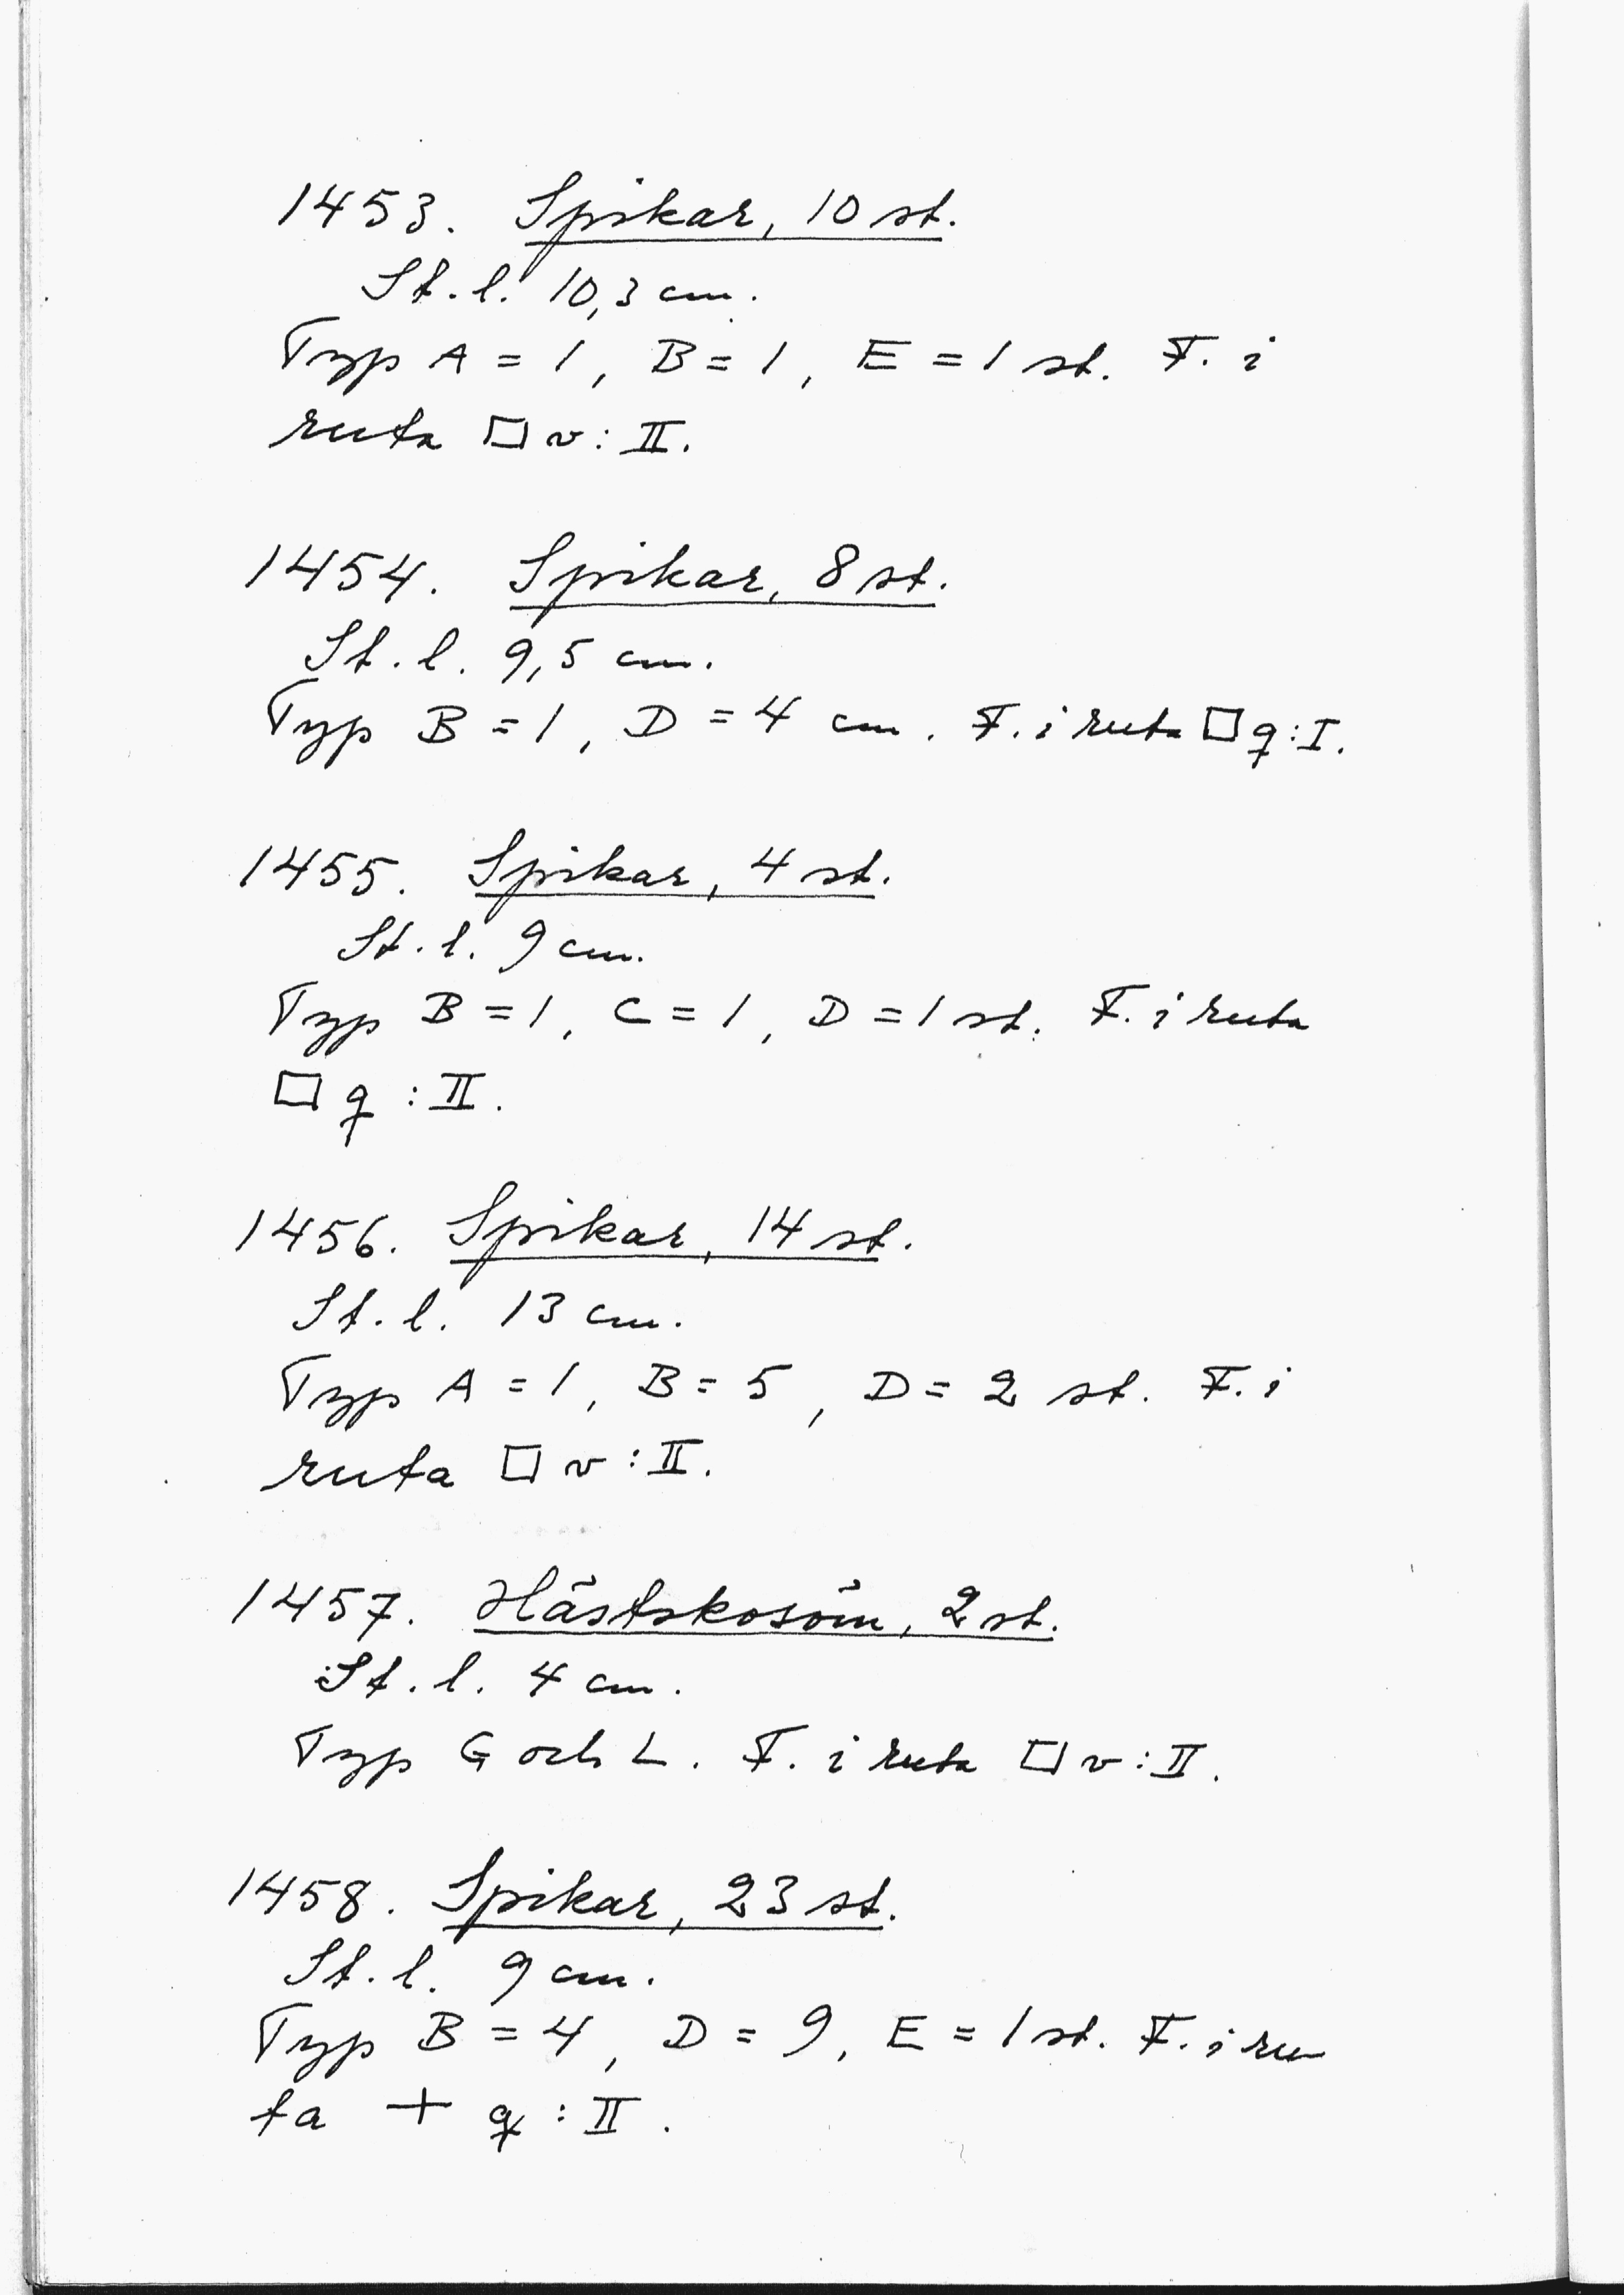 1453. Spikar, 10 st.
St. l. 10,3 cm.
Typ A = 1, B = 1, E = 1 st. F. i
ruta □ v : II.
1454. Spikar, 8 st.
St. l. 9,5 cm.
Typ B = 1, D = 4 cm. F. i ruta □ q : I.
1455. Spikar, 4 st.
St. l. 9 cm.
Typ B = 1, C = 1, D = 1 st. F. i ruta
□ q : II.
1456. Spikar, 14 st.
St. l. 13 cm.
Typ A = 1, B = 5, D = 2 st. F. i
ruta □ v : II.
1457. Hästskosöm, 2 st.
St. l. 4 cm.
Typ G och L. F. i ruta □ v : II.
1458. Spikar, 23 st.
St. l. 9 cm.
Typ B = 4, D = 9, E = 1 st. F. i ru
ta + q : II.